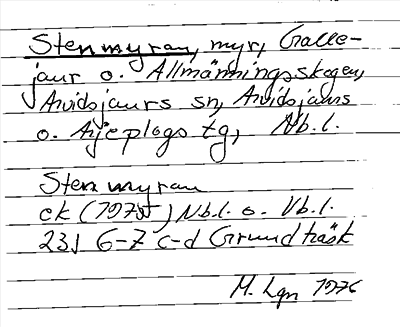 Stenmyran, myr, Galle-
jaur o. Allmänningsskogen,
Arvidsjaurs sn, Arvidsjaurs
o. Arjeplogs tg, Nb.l.
Stenmyran
ek (1975) Nb.l. o. Vb.l.
23J 6-7 c-d Grundträsk
M. Lgn 1976